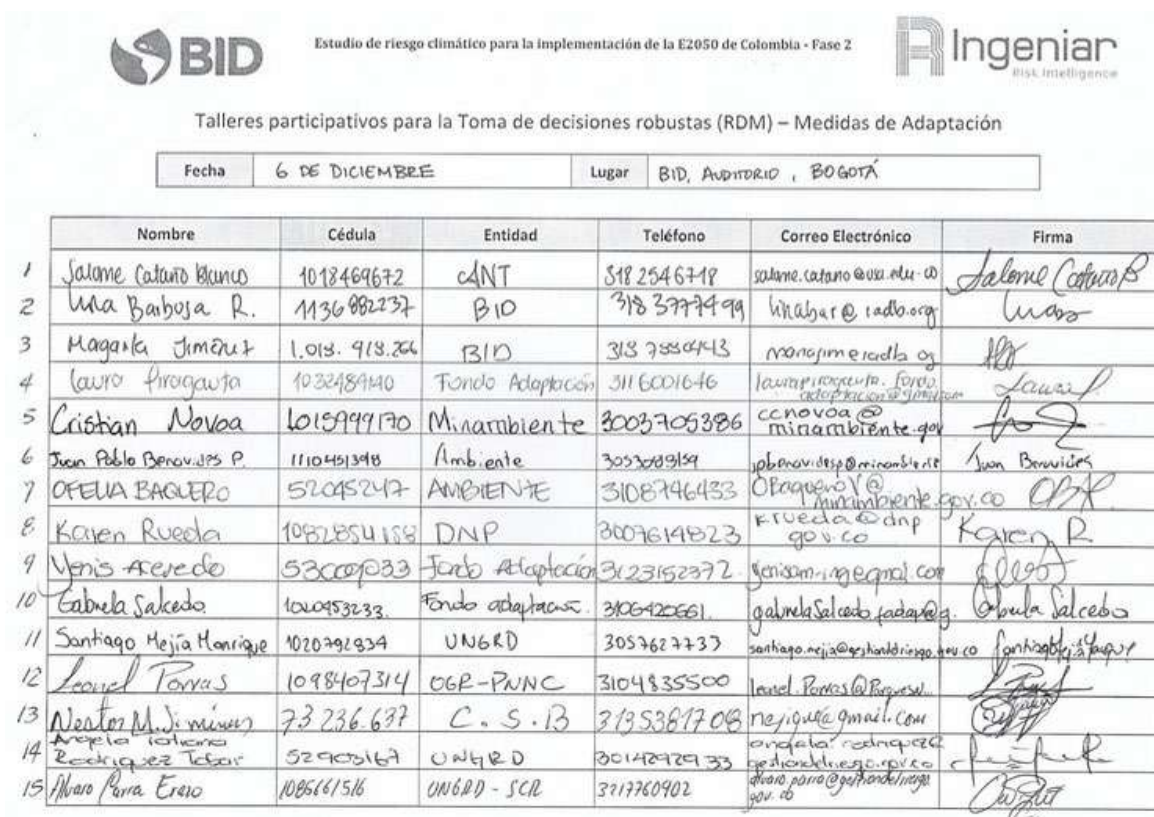 BID
Estudio de riesgo climático para la implementación de la E2050 de Colombia - Fase 2
Ingeniar
Risk Intelligence
Talleres participativos para la Toma de decisiones robustas (RDM) – Medidas de Adaptación
Fecha 6 DE DICIEMBRE Lugar BID, AUDITORIO, BOGOTÁ
Nombre Cédula Entidad Teléfono Correo Electrónico Firma
1 Salome Cataño Blanco 1018469672 ANT 318 2546718 salome.catano@usa.edu.co Salome Cataño B
2 Lina Barbosa R. 1136882237 BID 318 3777499 linabar@iadb.org
3 Jimenez BID
4 Laura Piragauta 1032489140 Fondo Adaptación 3116001646 Laura P.
5 Cristian Novoa 1015999170 Minambiente 3003705386 ccnovoa@minambiente.gov
6 Juan Pablo Benavides P. 1110451398 Ambiente Juan Benavides
7 OFELIA BAQUERO 52045247 AMBIENTE 3108746433 OBaqueroV@minambiente.gov.co
8 Karen Rueda 1082854158 DNP 3007614823 krueda@dnp.gov.co Karen R
9 Yenis Acevedo Fondo Adaptación 3123152372
10 Gabriela Salcedo 1020953233. Fondo adaptación. 3106420661. Gabriela Salcedo
11 Santiago Mejía Manrique 1020792934 UNGRD 3057627733 santiago.mejia@gestiondelriesgo.gov.co
12 Leonel Porras 1098407314 OGR-PNNC 3104835500
13 Nestor M. Jimenez 73236.637 C.S.B 3135381708 nejique@gmail.com
14 Angela Tatiana Rodriguez Tobar 52903167 UNGRD 3014292933
15 Alvaro Parra Erazo 1085661516 UNGRD - SCR 3217760902 alvaro.parra@gestiondelriesgo.gov.co